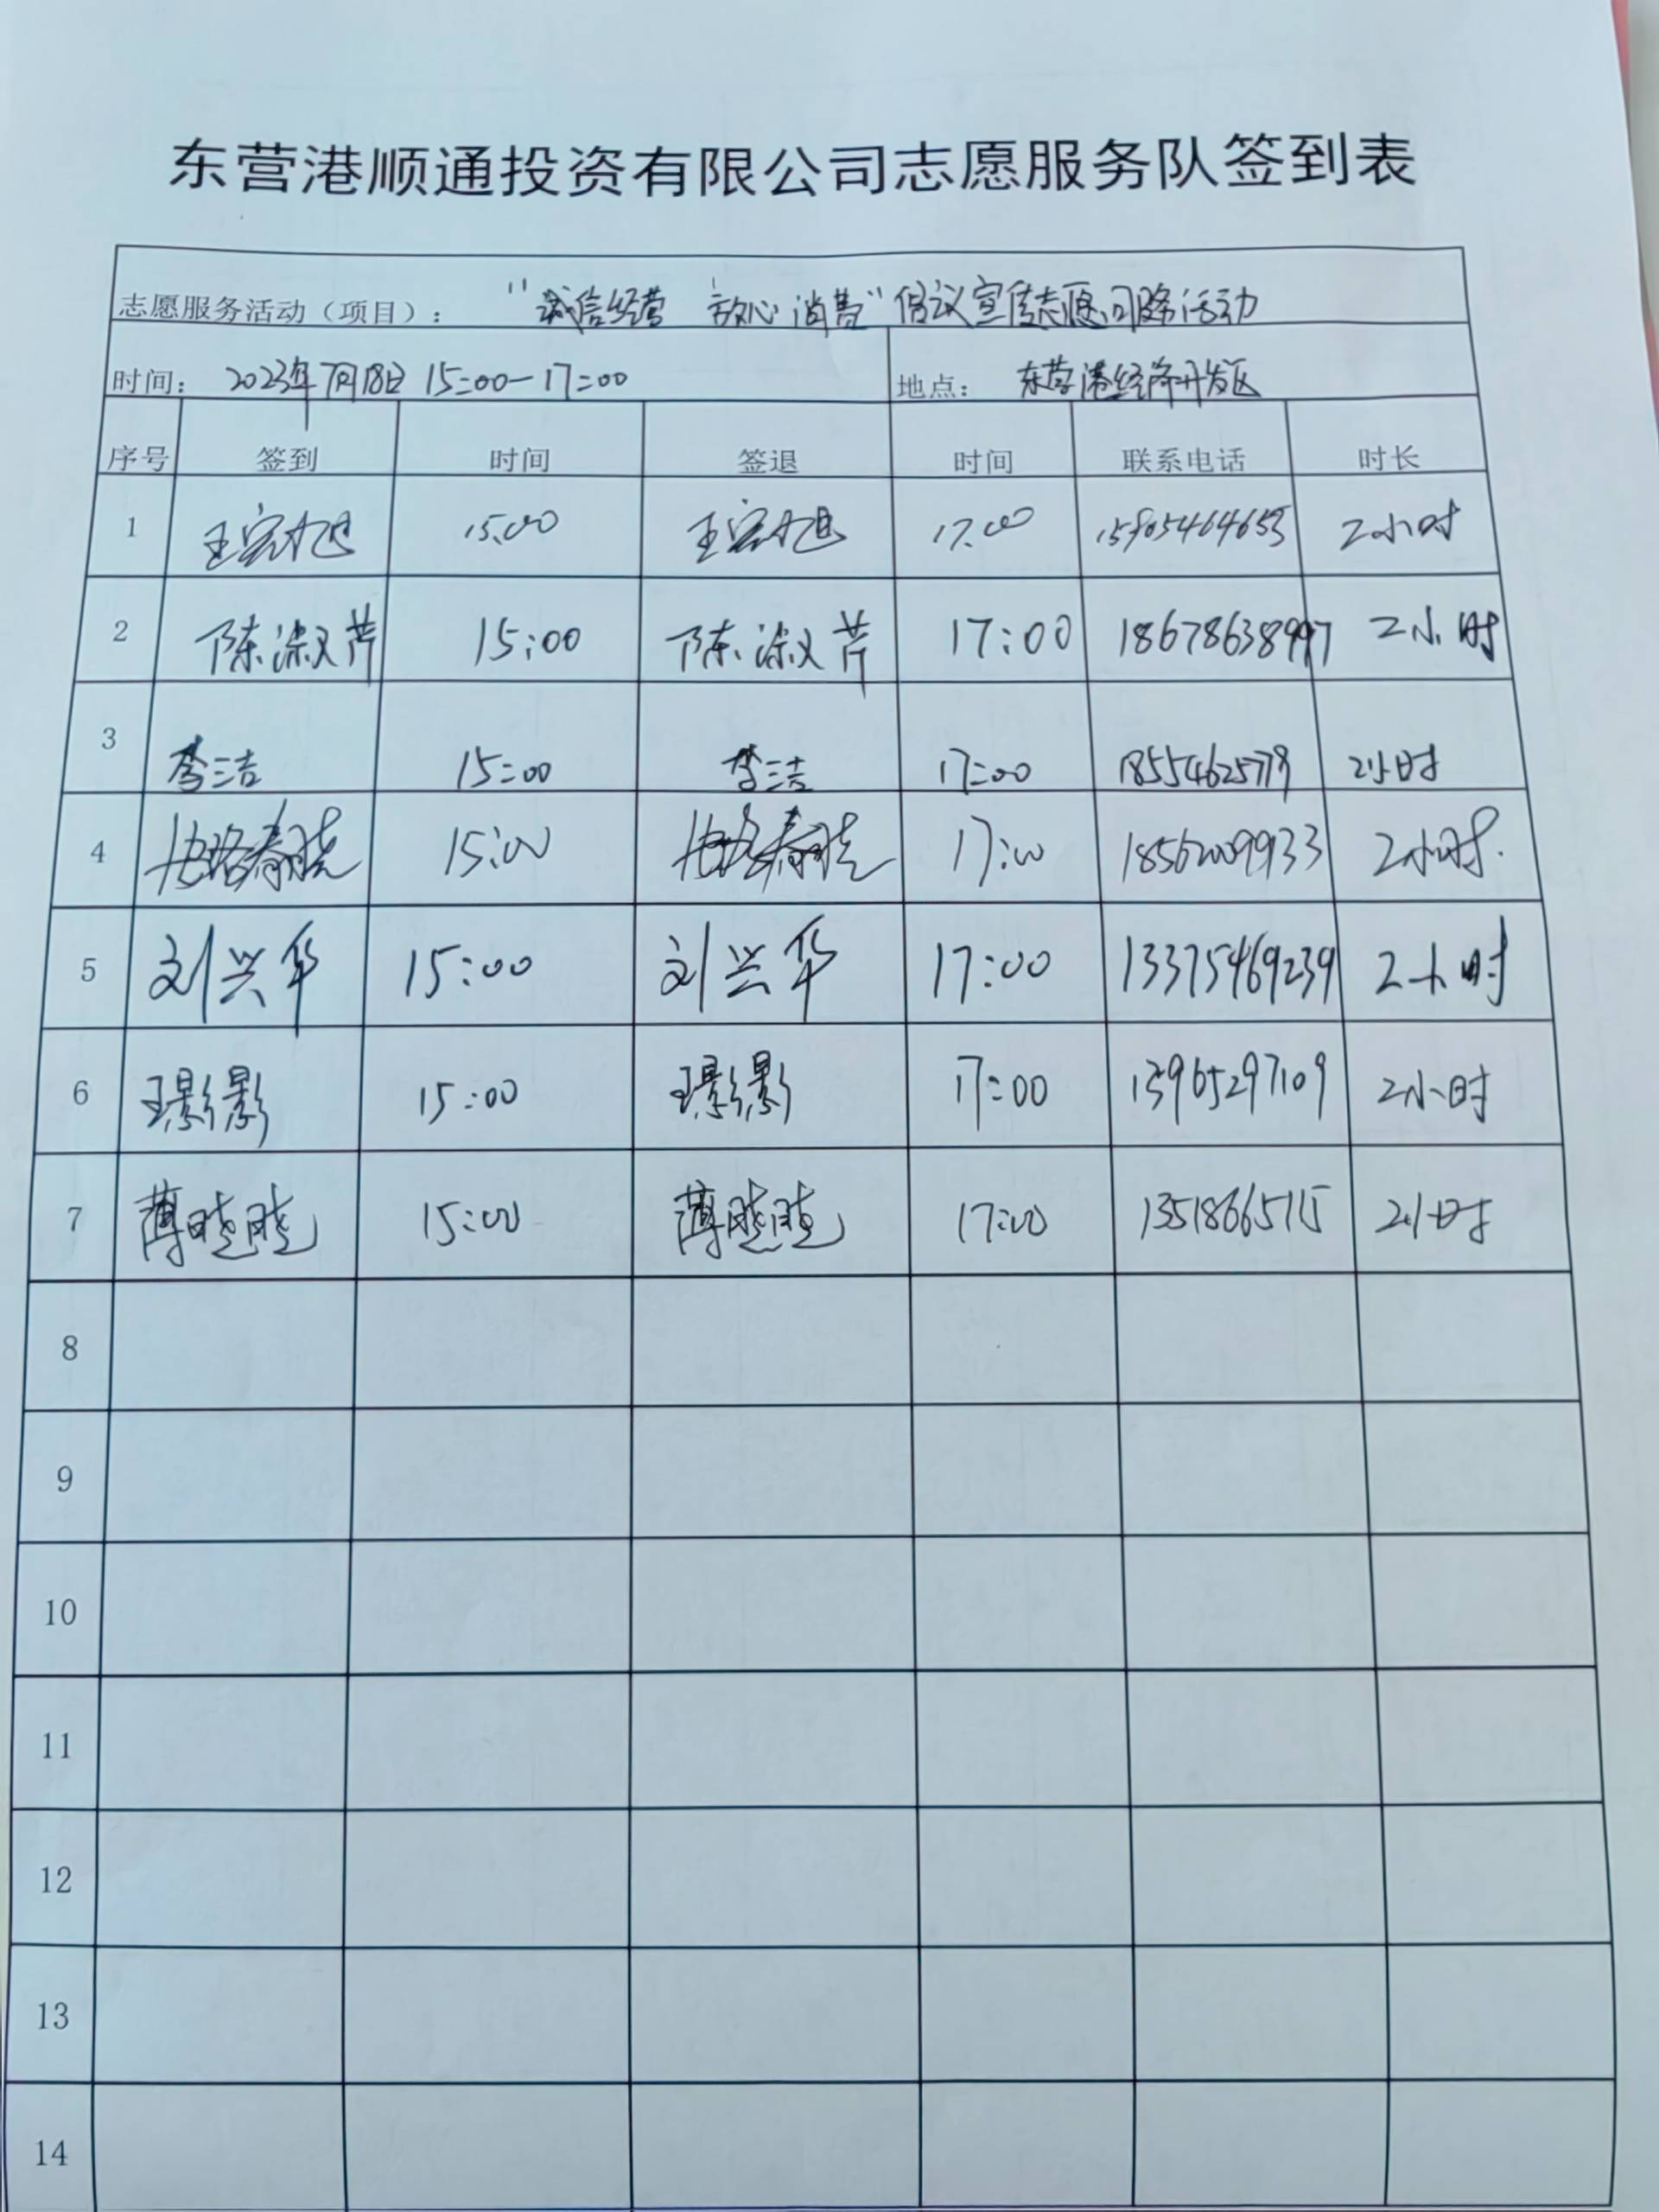 东营港顺通投资有限公司志愿服务队签到表
志愿服务活动（项目）： “诚信经营 放心消费”倡议宣传志愿服务活动
时间： 2023年7月18日 15:00-17:00 地点： 东营港经济开发区
序号 签到 时间 签退 时间 联系电话 时长
1 王宗旭 15:00 王宗旭 17:00 15905464653 2小时
2 陈淑芹 15:00 陈淑芹 17:00 18678638997 2小时
3 李洁 15:00 李洁 17:00 2小时
4 15:00 17:00 18562009933 2小时.
5 刘兴华 15:00 刘兴华 17:00 13375469239 2小时
6 王影影 15:00 王影影 17:00 13965297109 2小时
7 薄晓晓 15:00 薄晓晓 17:00 2小时
8
9
10
11
12
13
14